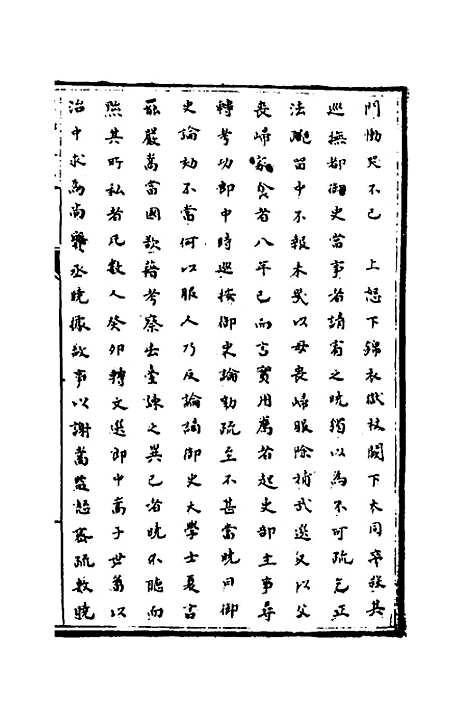 門慟哭不已　上怒下錦衣獄杖闕下大同卒殺其
巡撫都御史當事者請宥之曉獨以為不可疏言正
法疏留中不報未幾以母喪歸服除補武選又以父
喪歸家食者八年已而言實用薦者起吏部主事尋
轉考功郎中時巡按御史論劾疏至不甚當曉曰御
史論劾不當何以服人乃反論謫御史大學士夏言
罷嚴嵩當國欲藉考察出臺諫之異己者曉不聽而
黜其所私者凡數人癸卯轉文選郎中嵩子世蕃以
治中求為尚寶丞曉據故事以謝嵩益怒密疏數曉